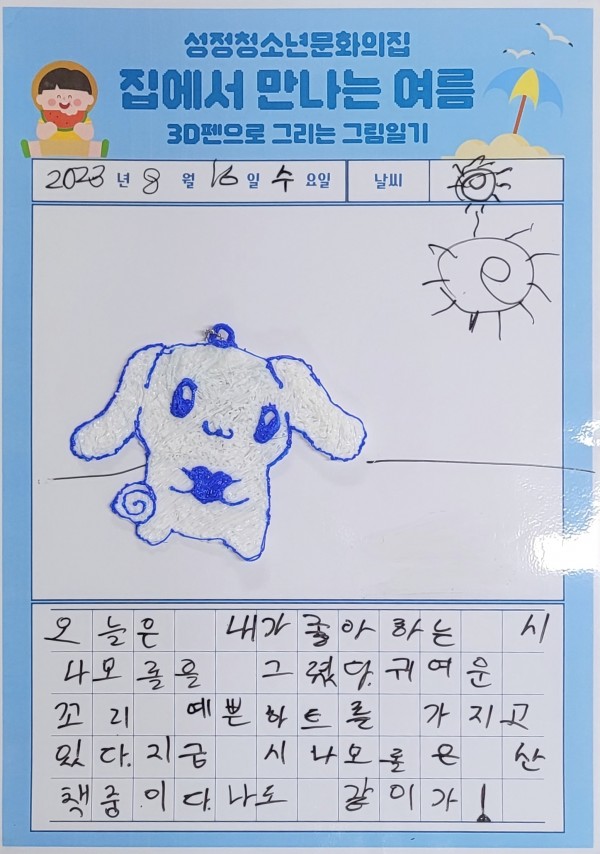 성정청소년문화의집
집에서 만나는 여름
3D펜으로 그리는 그림일기
2023 년 8 월 16 일 수 요일 날씨
오늘은 내가 좋아하는 시
나모롤을 그렸다. 귀여운
꼬리 예쁜 하트를 가지고
있다. 지금 시나모롤은 산
책중이다. 나도 같이 가!